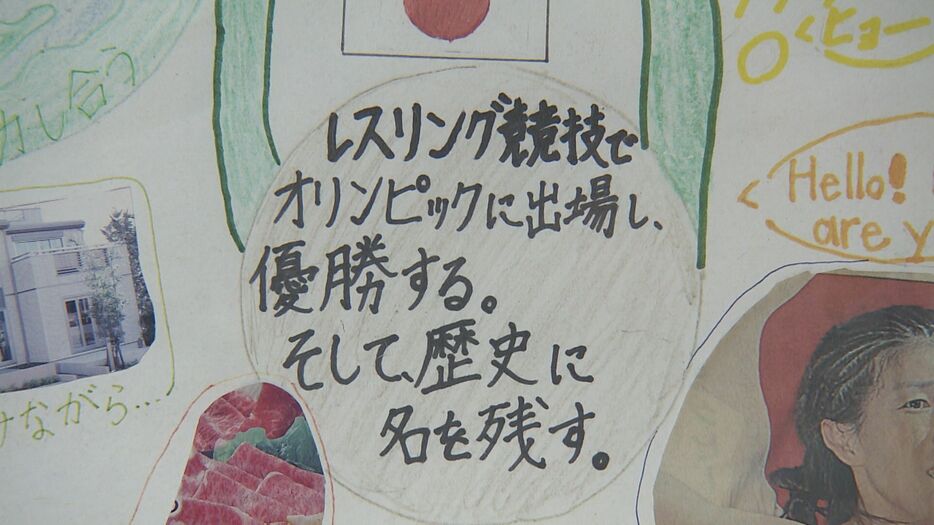 レスリング競技で
オリンピックに出場し、
優勝する。
そして、歴史に
名を残す。
力し合う
ながら…
ヒョー
Hello!
are y